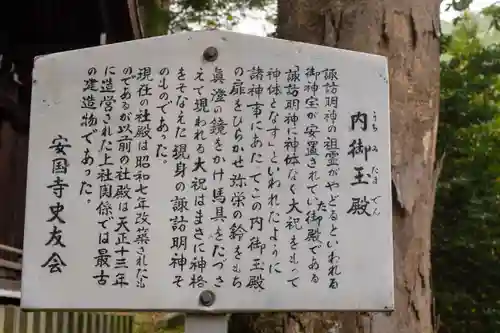 内御玉殿
うちみたまでん
諏訪明神の祖霊がやどるといわれる
御神宝が安置されていた御殿である
"諏訪明神に神体なく大祝をもって
神体となす"といわれたように
諸神事にあたってこの内御玉殿
の扉をひらかせ弥栄の鈴をもち
眞澄の鏡をかけ馬具をたづさ
えて現われる大祝はまさに神格
をそなえた現身の諏訪明神そ
のものであった。
現在の社殿は昭和七年改築されたも
のであるが以前の社殿は天正十三年
に造営された上社関係では最古
の建造物であった。
安国寺史友会